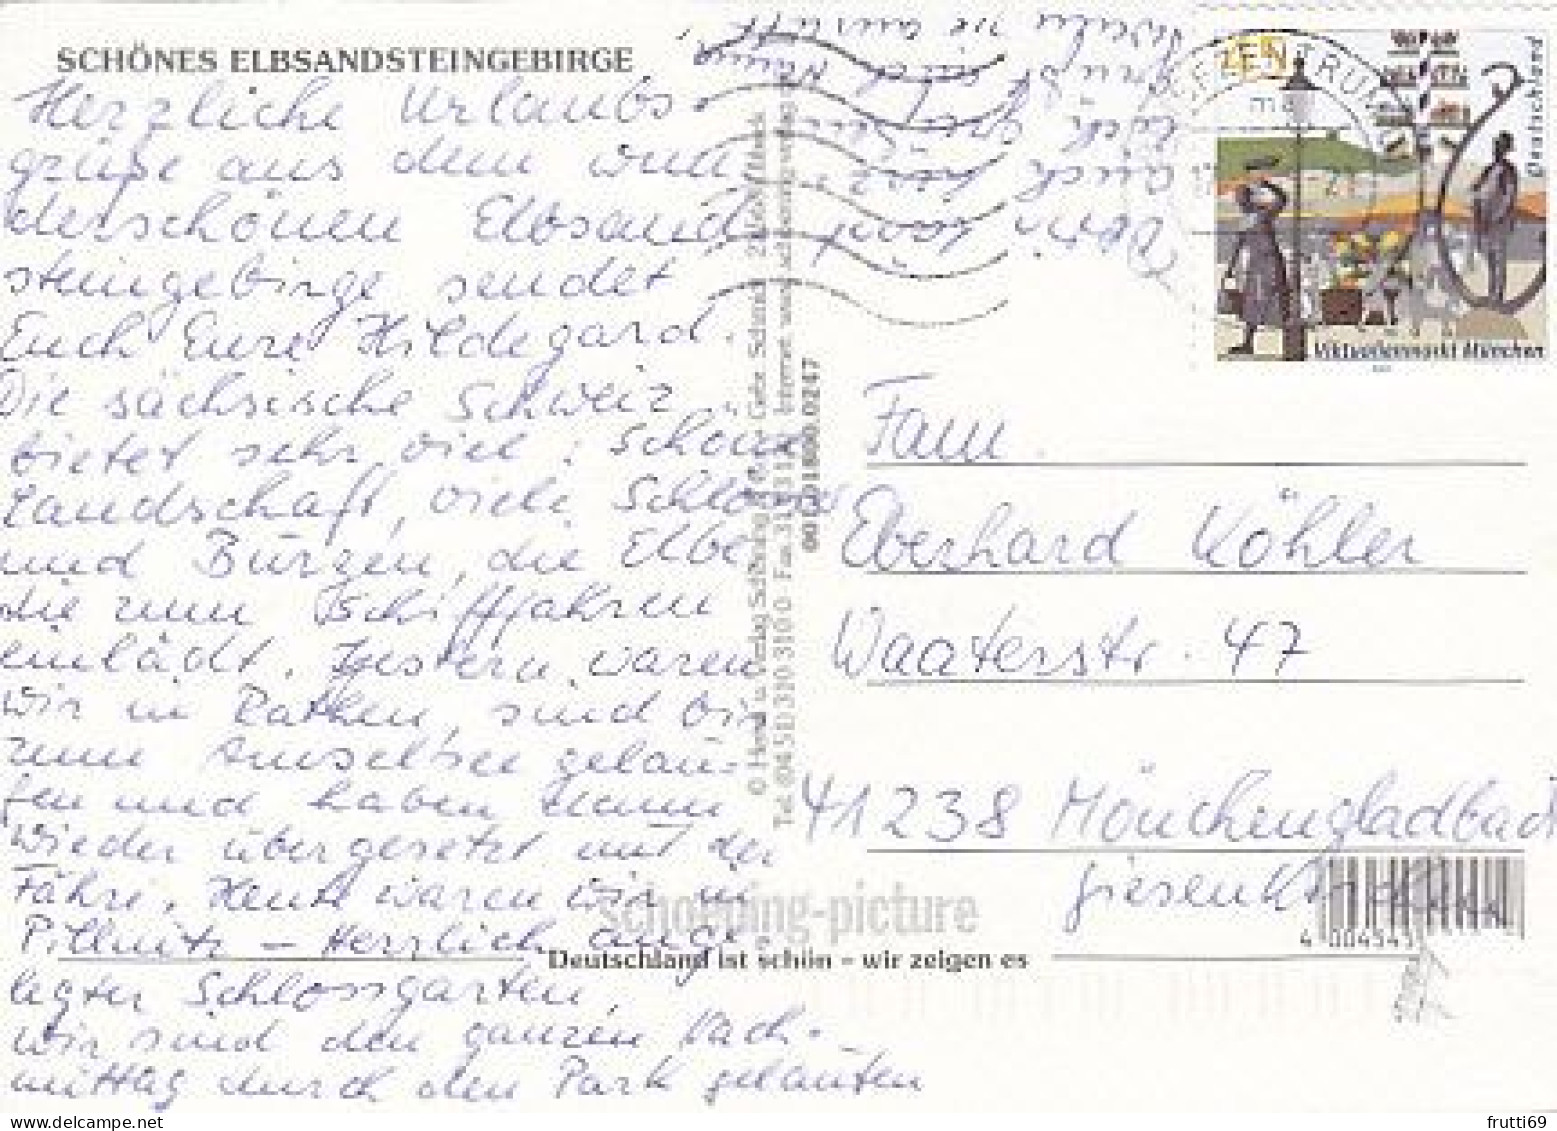 SCHÖNES ELBSANDSTEINGEBIRGE
Herzliche Urlaubs-
grüße aus dem wun
derschönen Elbsand
steingebirge sendet
Euch Eure Hildegard.
Die sächsische Schweiz
bietet sehr viel: Schöne
Landschaft, viele Schlösser
und Burgen, die Elbe
die zum Schifffahren
einlädt. Gestern waren
wir in Rathen, sind bis
zum Amselsee gelau-
fen und haben dann
wieder übergesetzt mit der
Fähre. Heute waren wir in
Pillnitz - Herrlich ange-
legter Schlossgarten,
wir sind den ganzen Nach-
mittag durch den Park gelaufen
auch
Euch
Fam.
Eberhard Köhler
Waaterstr. 47
41238 Mönchengladbach
Giesenkirchen
Deutschland
Viktualienmarkt München
001 01800.0247
schoening-picture
Deutschland ist schön - wir zeigen es
4 004545
frutti69